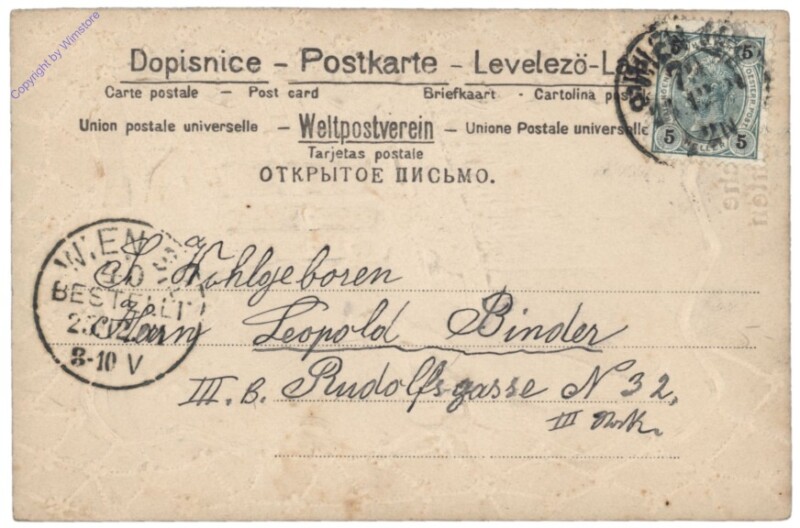 Copyright by Wimstore
Dopisnice – Postkarte – Levelező-L
Carte postale – Post card Briefkaart - Cartolina
Union postale universelle – Weltpostverein – Unione Postale universale
Tarjetas postale
ОТКРЫТОЕ ПИСЬМО.
5 5
OESTERR. POST.
5 HELLER 5
WIEN
BESTELLT
8-10 V
Sr. Wohlgeboren
Herrn Leopold Binder
III. B. Rudolfsgasse N 32,
III Stock.